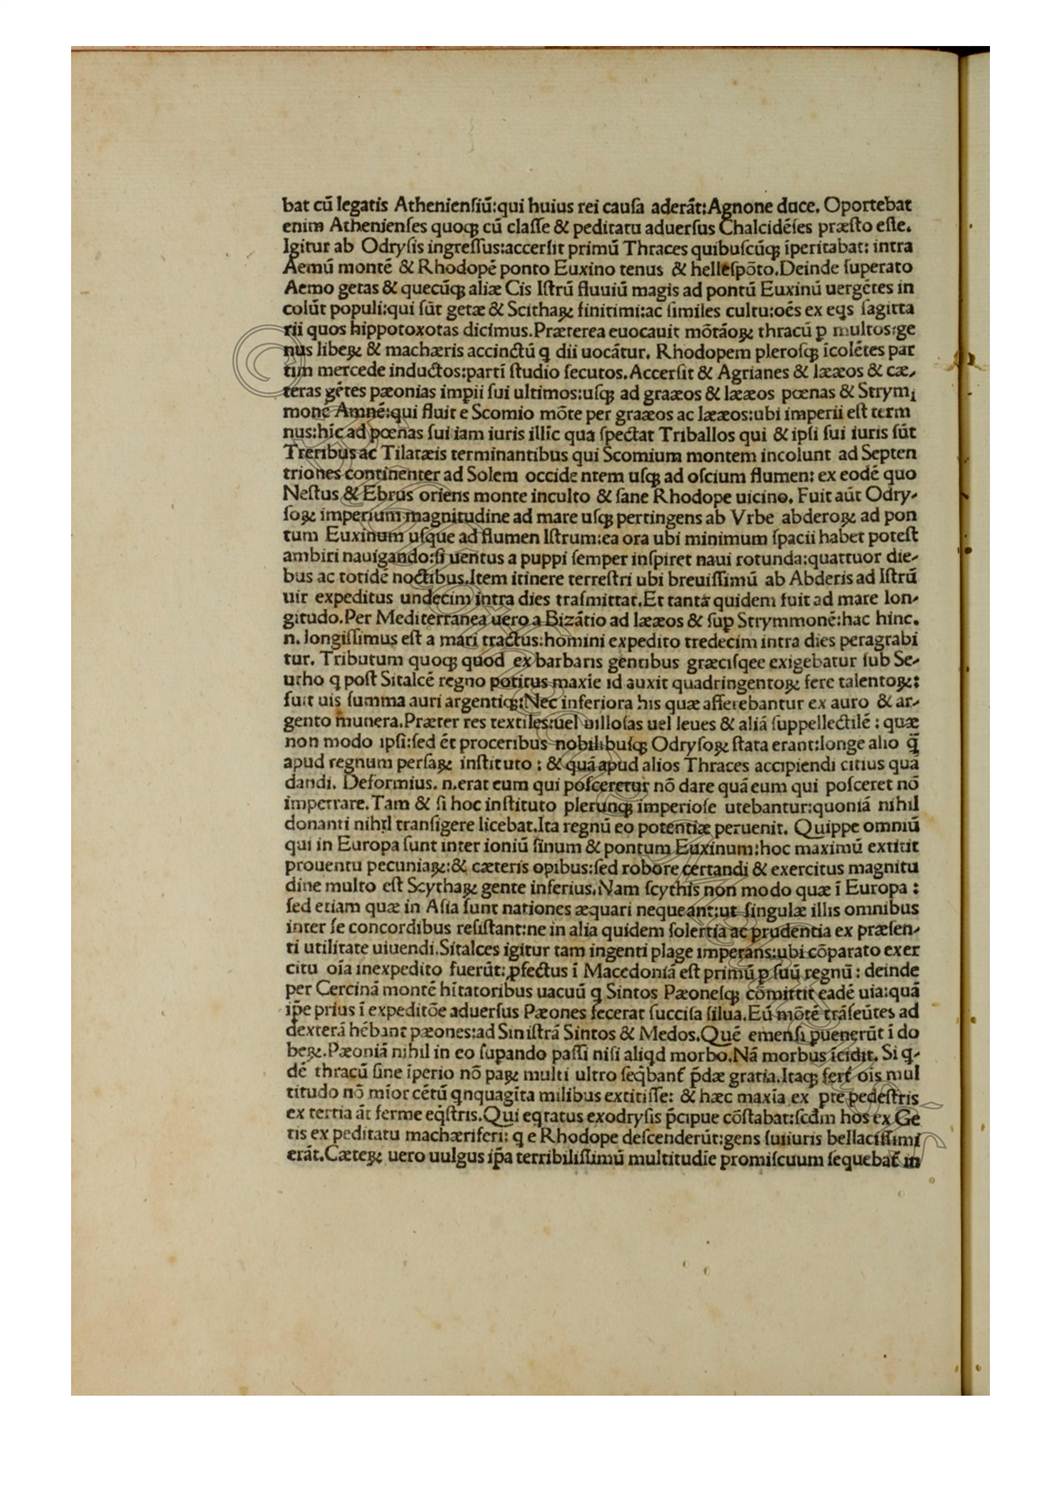 bat cū legatis Athenienſiū:qui huius rei cauſa aderāt:Agnone duce. Oportebat
enim Athenienſes quoqꝫ cū claſſe & peditatu aduerſus Chalcidēſes præſto eſſe.
Igitur ab Odryſis ingreſſus:accerſit primū Thraces quibuſcūqꝫ īperitabat: intra
Aemū montē & Rhodopē ponto Euxino tenus & helleſpōto.Deinde ſuperato
Aemo getas & quecūqꝫ aliæ Cis Iſtrū fluuiū magis ad pontū Euxinū uergētes in
colūt populi:qui ſūt getæ & Scithaꝝ finitimi:ac ſimiles cultu:oēs ex eqs ſagitta
rii quos hippotoxotas dicimus.Præterea euocauit mōtāoꝝ thracū p multos:ge
nus libeꝝ & machæris accinctū q dii uocātur. Rhodopem pleroſqꝫ īcolētes par
tim mercede inductos:partī ſtudio ſecutos.Accerſit & Agrianes & lææos & cæ-
teras gētes pæonias impii ſui ultimos:uſqꝫ ad graæos & lææos pœnas & Strymi
monē Amnē:qui fluit e Scomio mōte per graæos ac lææos:ubi imperii eſt term
nus:hīc ad pœnas ſui iam iuris illīc qua ſpectat Triballos qui & ipſi ſui iuris ſūt
Treribus ac Tilatæis terminantibus qui Scomium montem incolunt ad Septen
triones continenter ad Solem occide ntem uſqꝫ ad oſcium flumen: ex eodē quo
Neſtus & Ebrus oriens monte inculto & ſane Rhodope uicino. Fuit aūt Odry-
ſoꝝ imperium magnitudine ad mare uſqꝫ pertingens ab Vrbe abderoꝝ ad pon
tum Euxinum uſque ad flumen Iſtrum:ea ora ubi minimum ſpacii habet poteſt
ambiri nauigando:ſi uentus a puppi ſemper inſpiret naui rotunda:quattuor die-
bus ac totidē noctibus.Item itinere terreſtri ubi breuiſſimū ab Abderis ad Iſtrū
uir expeditus undecim intra dies traſmittat.Et tanta quidem fuit ad mare lon-
gitudo.Per Mediterranea uero a Bizātio ad lææos & ſup Strymmonē:hac hinc.
n. longiſſimus eſt a mari tractus:homini expedito tredecim intra dies peragrabi
tur. Tributum quoqꝫ quod ex barbaris gentibus græciſqee exigebatur ſub Se-
utho q poſt Sitalcē regno potitus maxīe id auxit quadringentoꝝ fere talentoꝝ:
fuit uis ſumma auri argentiqꝫ:Nec inferiora his quæ afferebantur ex auro & ar-
gento munera.Præter res textiles:uel uilloſas uel leues & aliā ſuppellectilē : quæ
non modo ipſi:ſed ēt proceribus nobilibuſqꝫ Odryſoꝝ ſtata erant:longe alio q̄
apud regnum perſaꝝ inſtituto : & quā apud alios Thraces accipiendi citius quā
dandi. Deformius. n.erat eum qui poſceretur nō dare quā eum qui poſceret nō
impetrare.Tam & ſi hoc inſtituto plerunqꝫ imperioſe utebantur:quoniā nihil
donanti nihil tranſigere licebat.Ita regnū eo potentiæ peruenit. Quippe omniū
qui in Europa ſunt inter ioniū ſinum & pontum Euxinum:hoc maximū extitit
prouentu pecuniaꝝ:& cæteris opibus:ſed robore certandi & exercitus magnitu
dine multo eſt Scythaꝝ gente inferius.Nam ſcythis non modo quæ ī Europa :
ſed etiam quæ in Aſia ſunt nationes æquari nequeant:ut ſingulæ illis omnibus
inter ſe concordibus reſiſtant:ne in alia quidem ſolertia ac prudentia ex præſen-
ti utilitate uiuendi.Sitalces igitur tam ingenti plage imperans:ubi cōparato exer
citu oīa inexpedito fuerūt:ꝓfectus ī Macedoniā eſt primū p ſuū regnū : deinde
per Cercinā montē hītatoribus uacuū q Sintos Pæoneſqꝫ cōmittit eadē uia:quā
ip̄e prius ī expeditōe aduerſus Pæones fecerat ſucciſa ſilua.Eū mōtē trāſeūtes ad
dexterā hēbant pæones:ad Siniſtrā Sintos & Medos.Quē emenſi puenerūt ī do
beꝝ.Pæoniā nihil in eo ſupando paſſi niſi aliqd morbo.Nā morbus īcidit. Si q-
dē thracū ſine īperio nō paꝝ multi ultro ſeq̄bant̄ p̄dæ gratia.Itaqꝫ fert̄ oīs mul
titudo nō mīor cētū qnquagīta milibus extitiſſe: & hæc maxīa ex pte pedeſtris
ex tertia āt ferme eq̄ſtris.Qui eqtatus exodryſis p̄cipue cōſtabat:ſcdm hos ex Ge
tis ex peditatu machæriferi: q e Rhodope deſcenderūt:gens ſuiiuris bellaciſſimi
erāt.Cæteꝝ uero uulgus ip̄a terribiliſſimū multitudīe promiſcuum ſequebat̄ in